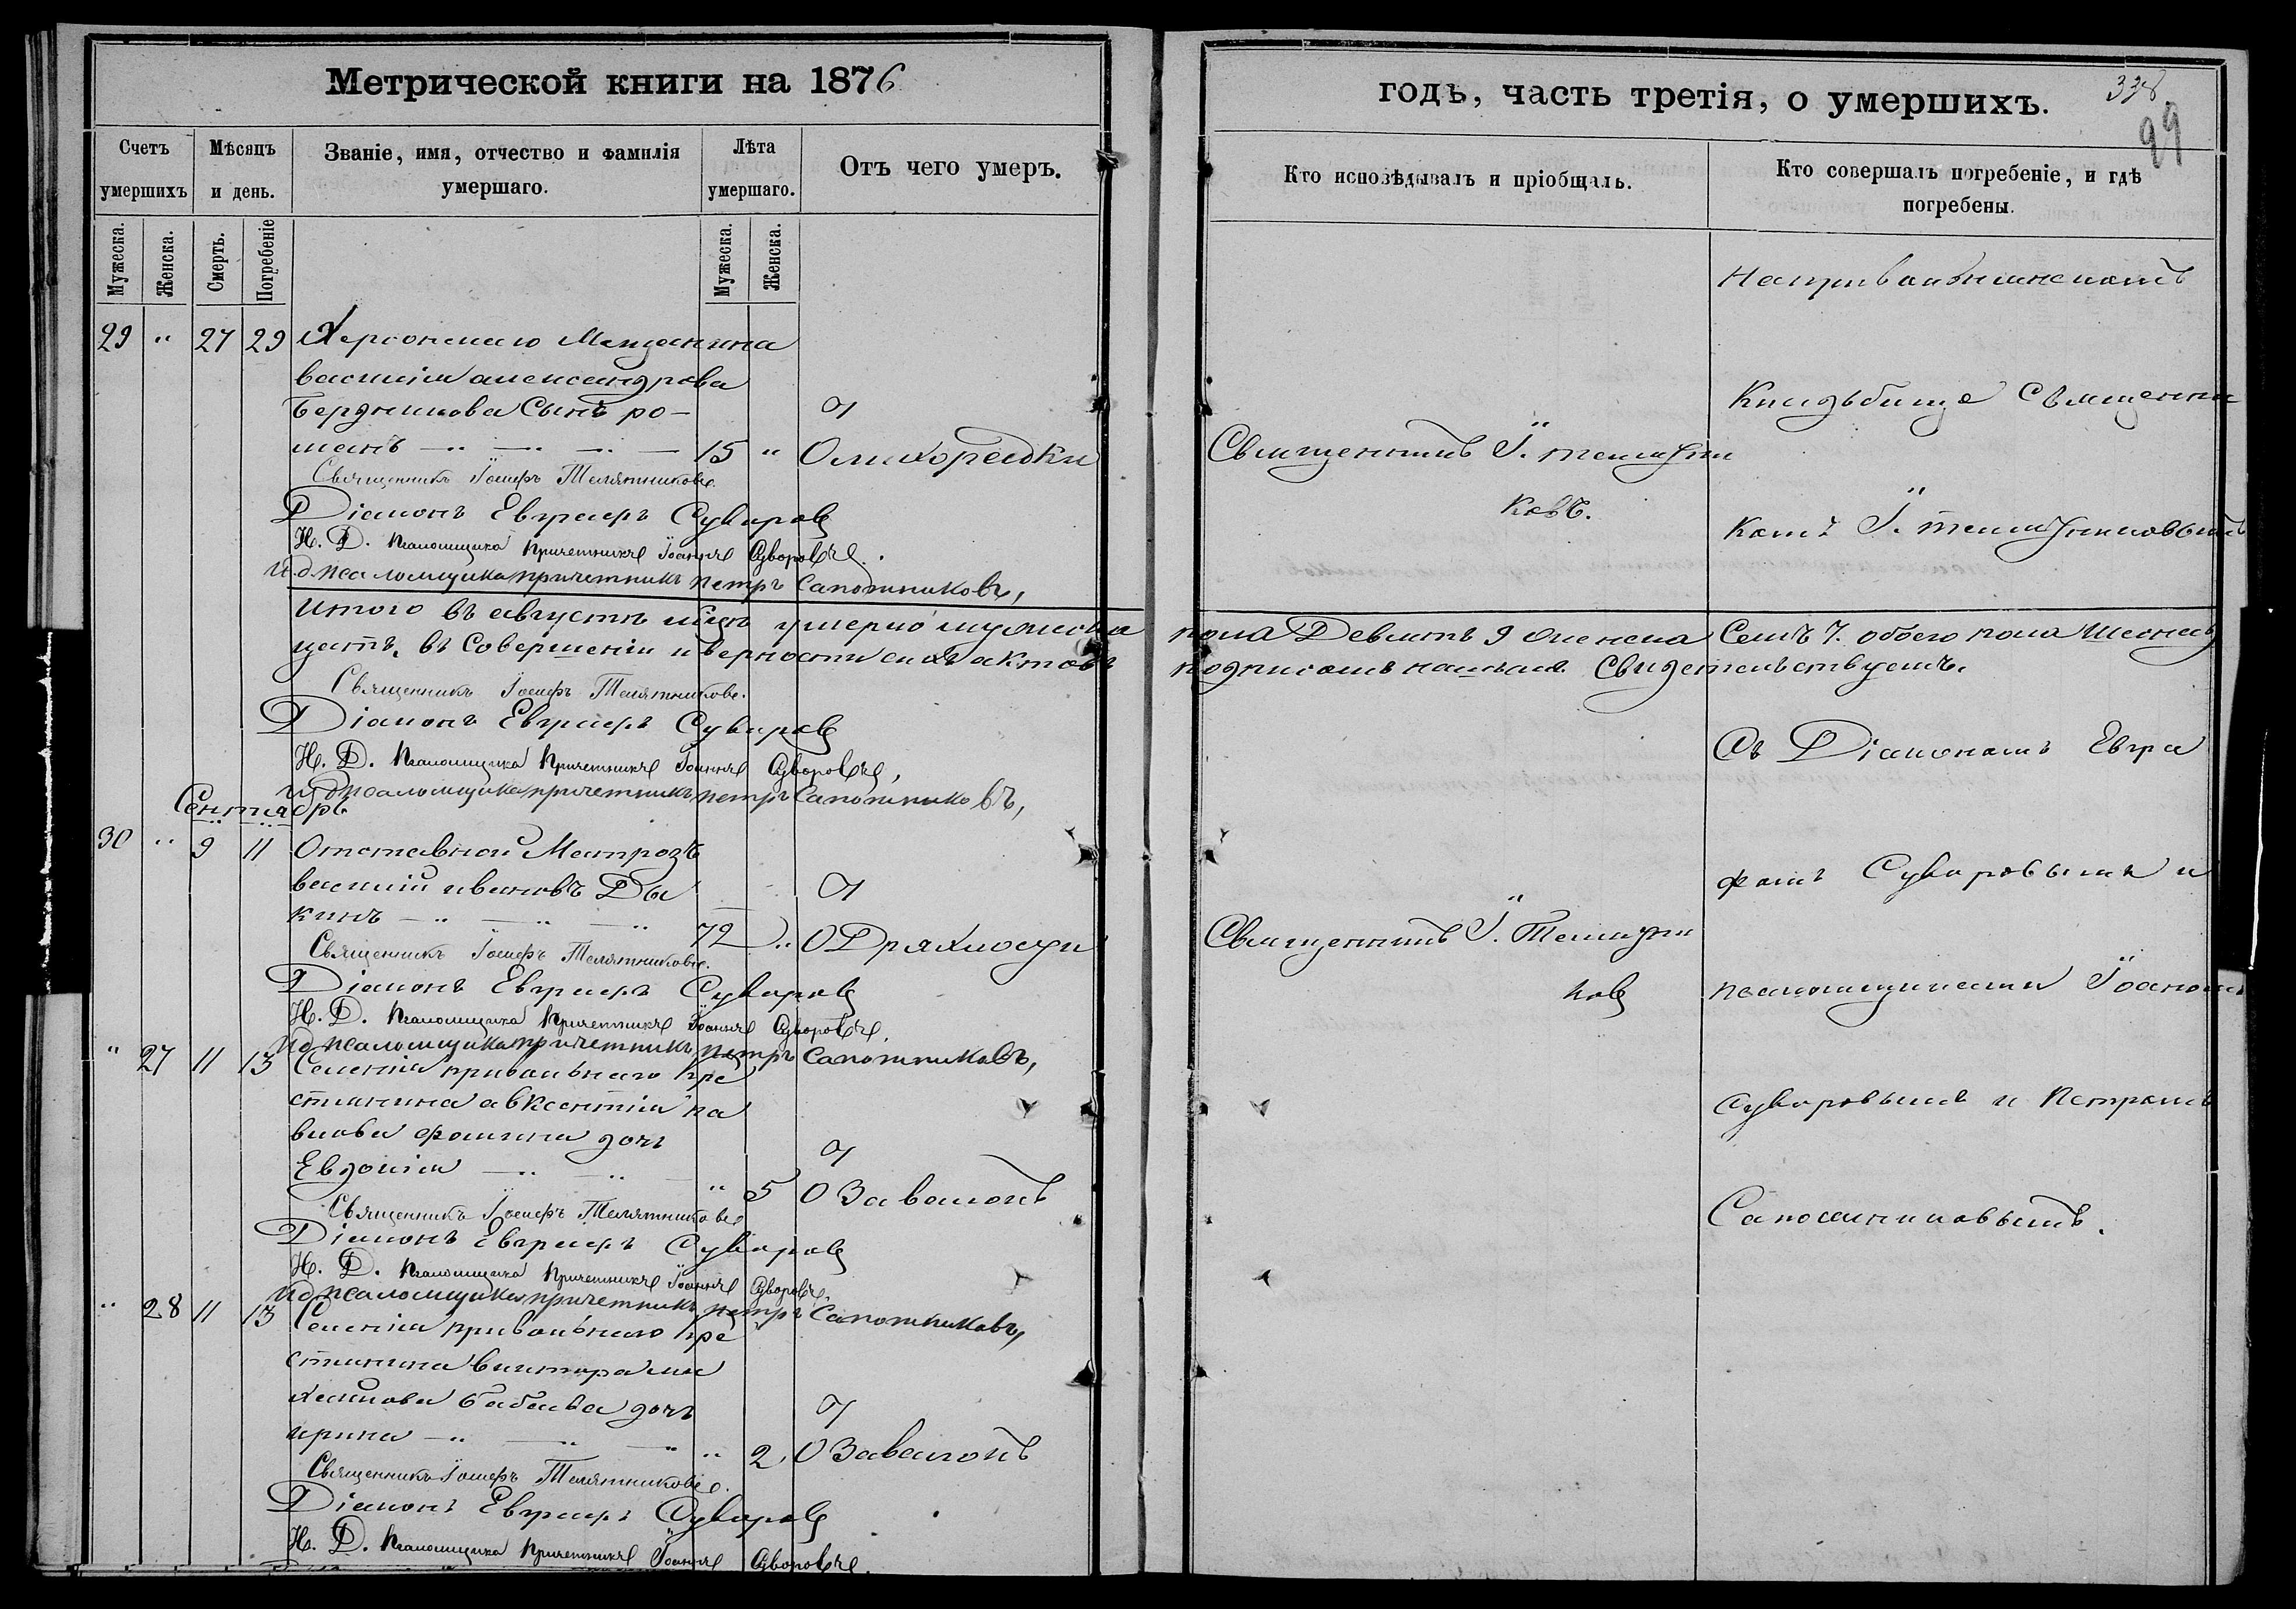 Метрической книги на 1876
Счетъ умершихъ
Мѣсяцъ и день.
Званіе, имя, отчество и фамилія умершаго.
Лѣта умершаго.
Отъ чего умеръ.
Мужеска.
Женска.
Смерть.
Погребеніе
Мужеска.
Женска.
29 " 27 29 Херсонскаго Мещанина
василія александрова
бердникова Сынъ ро-
манъ 15 " О лихорадки
Священникъ Іосифъ Телятниковъ.
Діаконъ Евграфъ Суворовъ
И. Д. Псаломщика Причетникъ Іоаннъ Суворовъ.
и.д псаломщика причетникъ петръ Сапожниковъ,
Итого въ августѣ мѣсяцѣ умерло мужеска
Священникъ Іосифъ Телятниковъ.
Діаконъ Евграфъ Суворовъ
И. Д. Псаломщика Причетникъ Іоаннъ Суворовъ,
и д псаломщика причетникъ петръ Сапожниковъ,
Сентябрь
30 " 9 11 Отставной Матрозъ
василій ивановъ Ды
кинъ 72 " О Дряхлости
Священникъ Іосифъ Телятниковъ.
Діаконъ Евграфъ Суворовъ
И. Д. Псаломщика Причетникъ Іоаннъ Суворовъ.
и д псаломщика причетникъ петръ Сапожниковъ,
" 27 11 13 Селенія привольнаго кре
стьянина авксентія па
влова фомина дочь
Евдокія " 5 О Завалокъ
Священникъ Іосифъ Телятниковъ
Діаконъ Евграфъ Суворовъ
И. Д. Псаломщика Причетникъ Іоаннъ Суворовъ.
и д псаломщика причетникъ петръ Сапожниковъ,
" 28 11 13 Селенія привольнаго кре
стьянина виктора ми
хайлова бабаева дочь
ирина " 2 О Завалокъ
Священникъ Іосифъ Телятниковъ.
Діаконъ Евграфъ Суворовъ
И. Д. Псаломщика Причетникъ Іоаннъ Суворовъ.
годъ, часть третія, о умершихъ.
338
99
Кто исповѣдывалъ и пріобщалъ.
Кто совершалъ погребеніе, и гдѣ погребены.
На привольнянскомъ
Кладьбище Священни
Священникъ І. телятни
ковъ.
комъ І. телятниковымъ
пола Девять 9 женска Семь 7. обоего пола Шеснад
цать. въ Совершеніи и верности сихъ актовъ подписомъ нашымъ Свидетельствуемъ.
Съ Діакономъ Евгра
фомъ Суворовымъ и
Священникъ І. Телятни
ковъ
псаломщиками Іоаномъ
Суворовымъ и Петромъ
Сапожниковымъ.